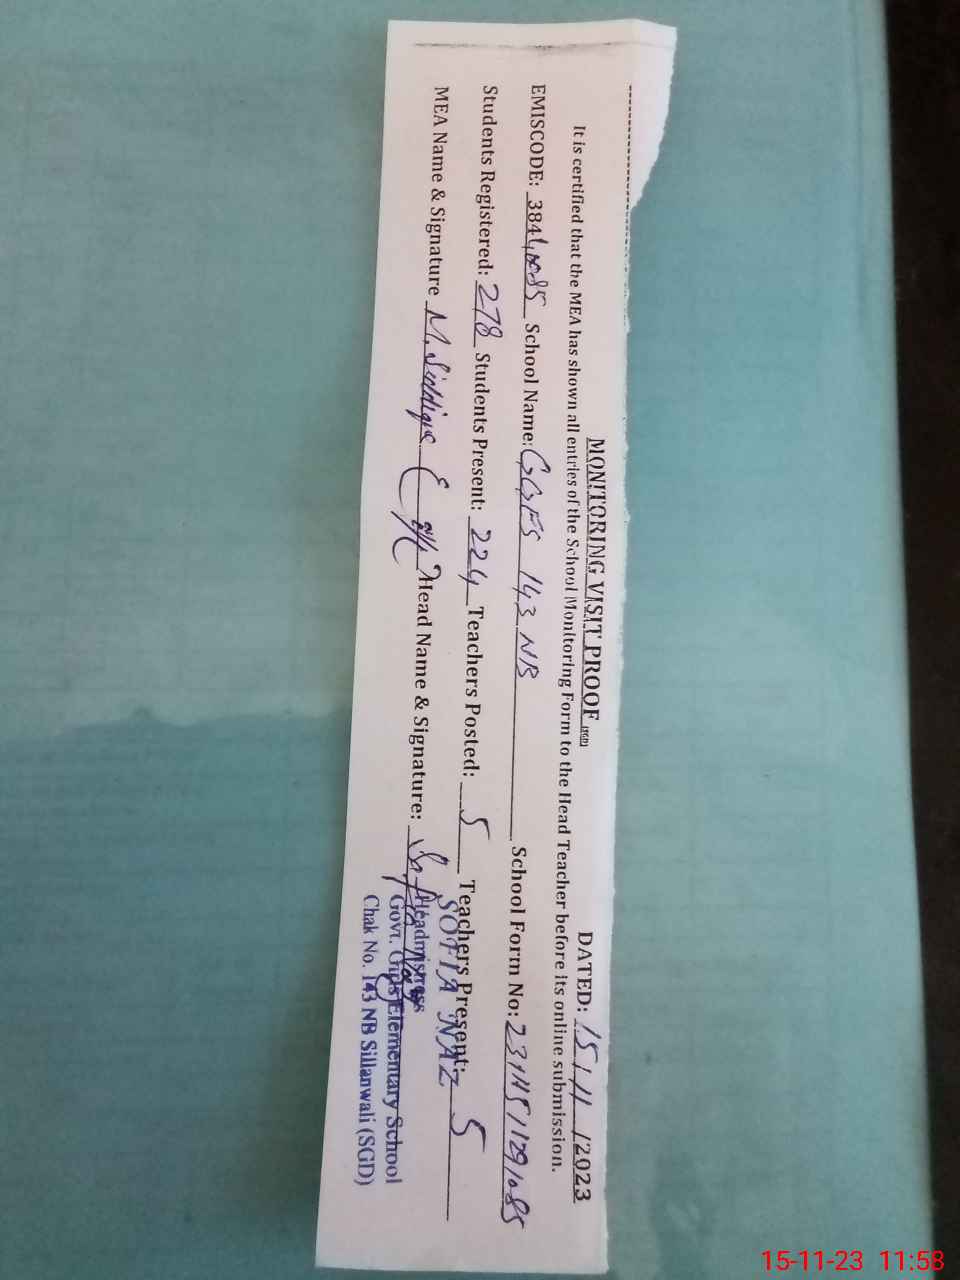 MONITORING VISIT PROOF (SGD) DATED: 15/11/2023
It is certified that the MEA has shown all entries of the School Monitoring Form to the Head Teacher before its online submission.
EMISCODE: 38440085 School Name: GGES 143 NB School Form No:
Students Registered: 278 Students Present: 224 Teachers Posted: 5 Teachers Present: 5
MEA Name & Signature M. Siddique Head Name & Signature: Sofia Naz
SOFIA NAZ
Headmistress
Govt. Girls Elementary School
Chak No. 143 NB Sillanwali (SGD)
15-11-23 11:58